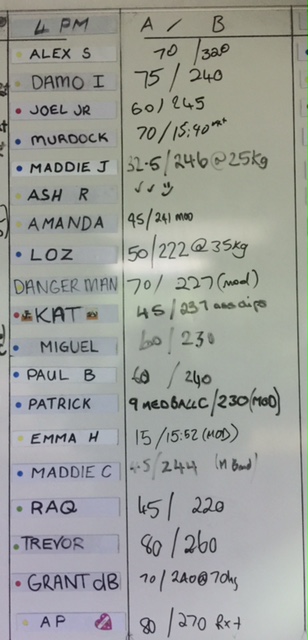 4 PM A / B
ALEX S 70 / 320
DAMO I 75 / 240
JOEL JR 60 / 245
MURDOCK 70 / 15:40
MADDIE J 32.5 / 246 @ 25kg
ASH R ✓ ✓ ☺
AMANDA 45 / 241 MOD
LOZ 50 / 222 @ 35kg
DANGERMAN 70 / 227 (mod)
KAT 45 / 237
MIGUEL 60 / 230
PAUL B 60 / 240
PATRICK 9 MEDBALL C / 230 (MOD)
EMMA H 15 / 15:52 (MOD)
MADDIE C / 244 (M Band)
RAQ 45 / 220
TREVOR 80 / 260
GRANT dB 70 / 240 @ 70kg
AP 80 / 270 Rx+